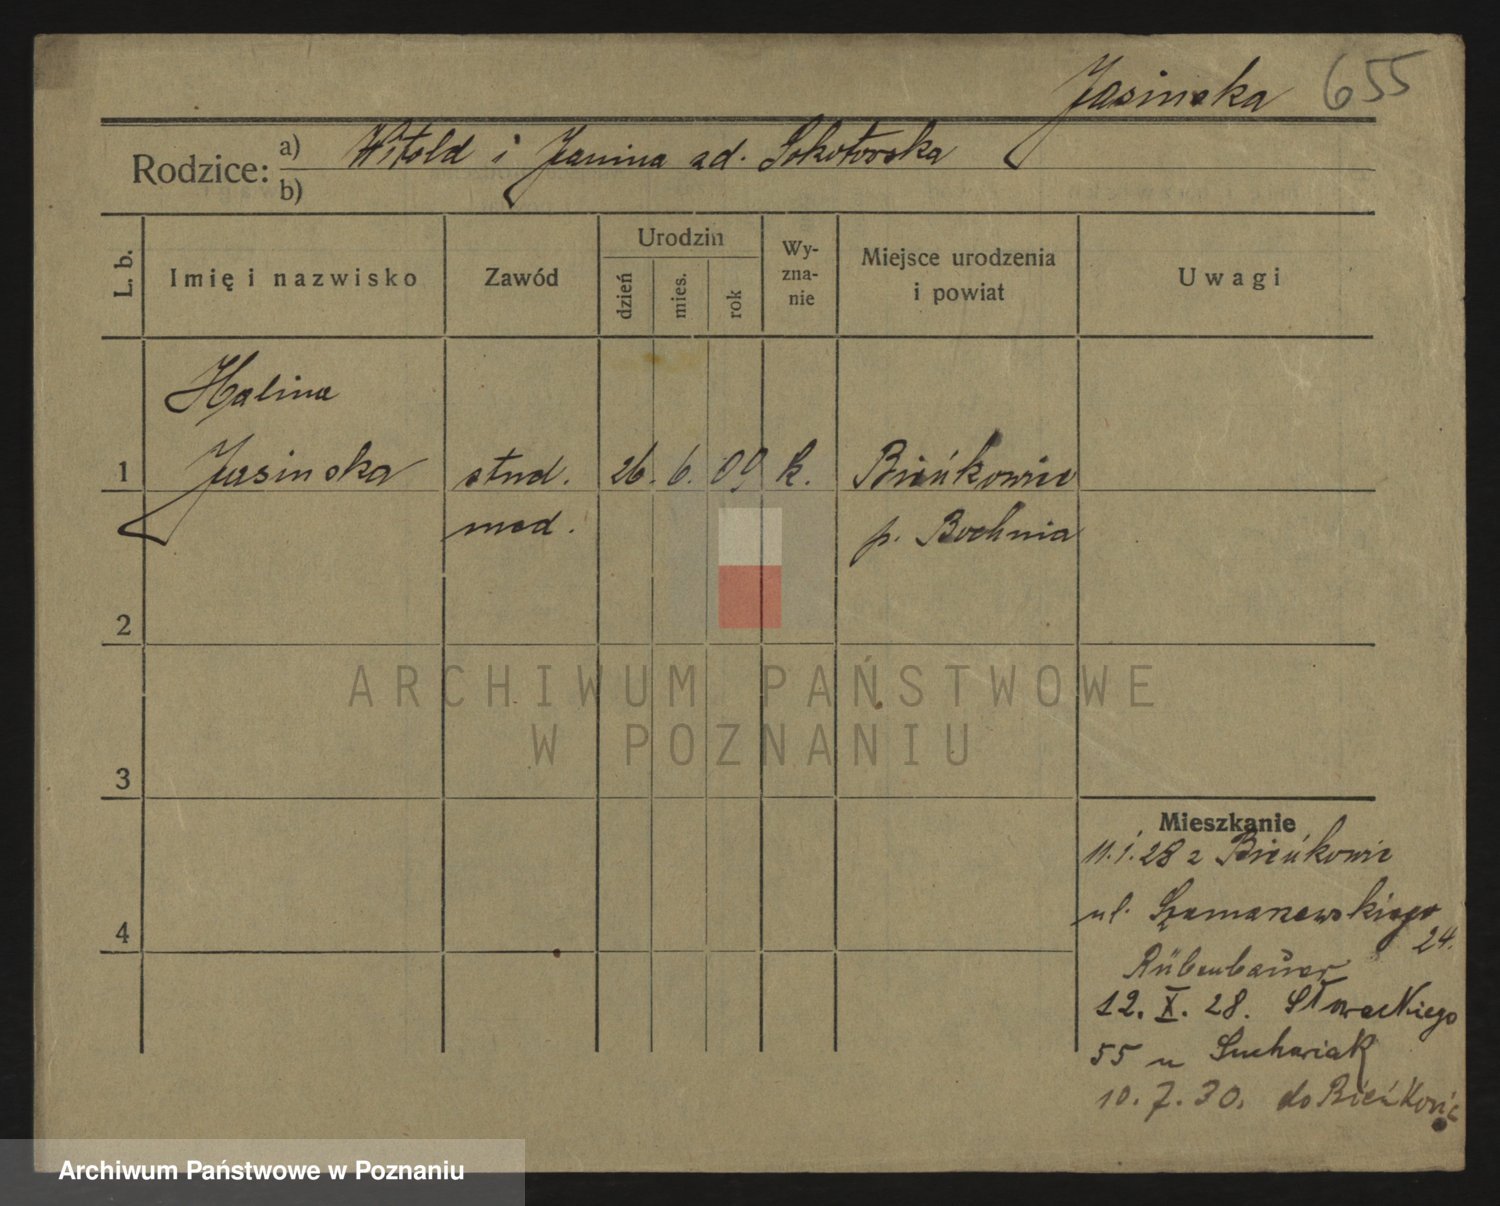 Jasinska 655
Rodzice: a) Witold i Janina zd. Sokołowska
b)
L. b. Imię i nazwisko Zawód Urodzin dzień mies. rok Wyzna-nie Miejsce urodzenia i powiat Uwagi
Halina
1 Jasinska stud. 26. 6. 09 k. Bieńkowic
med. p. Bochnia
2
ARCHIWUM PAŃSTWOWE
W POZNANIU
3
Mieszkanie
11.1.28 z Bieńkowic
ul. Szamarzewskiego
24.
4
Rübenbauer
12. X. 28. Słowackiego
55 u Suchariak
10. 7. 30. do Bieńkowic
Archiwum Państwowe w Poznaniu